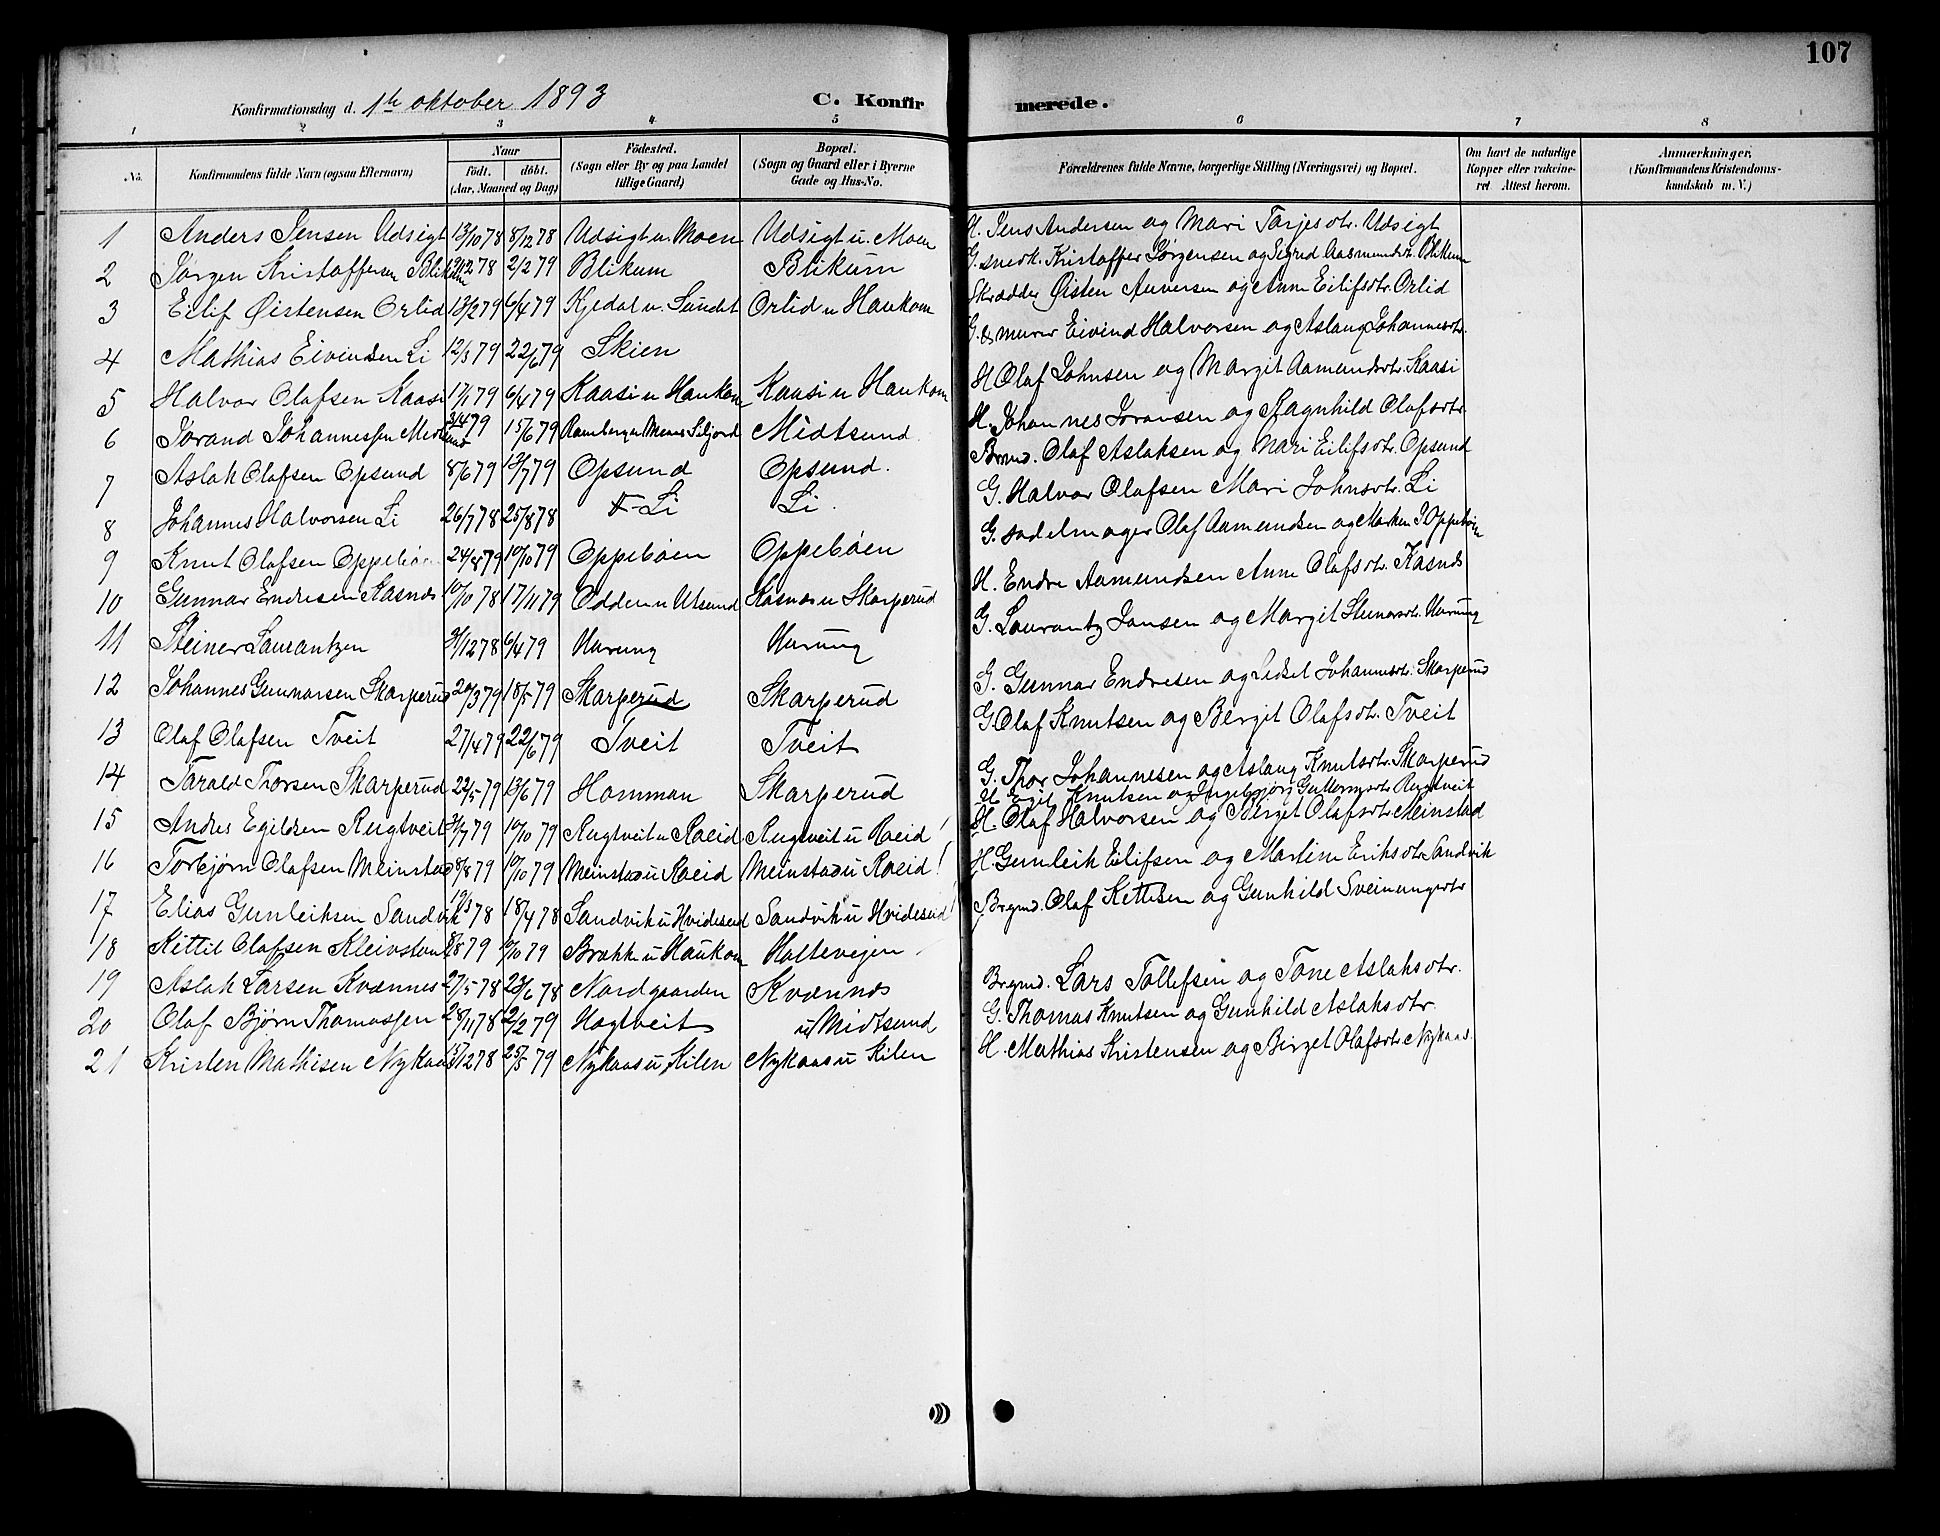 107
Konfirmationsdag d. 1ste oktober 1893 C. Konfirmerede.
1 2 3 4 5 6 7 8
No. Konfirmandens fulde Navn (ogsaa Efternavn) Naar födt. döbt. (Aar, Maaned og Dag) Födested. (Sogn eller By og paa Landet tillige Gaard) Bopæl. (Sogn og Gaard eller i Byerne Gade og Hus-No. Forældrenes fulde Navne, borgerlige Stilling (Næringsvei) og Bopæl. Om havt de naturlige Kopper eller vakcineret Attest herom. Anmærkninger. (Konfirmandens Kristendomskundskab m. V.)
1 Anders Jensen Udsigt 13/10 78 8/12 78 Udsigt u. Moen Udsigt u. Moen H. Jens Andersen og Mari Tarjesdtr. Udsigt
2 Jørgen Kristoffersen Blikum 12 78 2/2 79 Blikum Blikum G. snedk. Kristoffer Jørgensen og Sigrid Aasmundsdtr. Blikum
3 Eilif Øistensen Orlid 13/2 79 6/4 79 Kjedal u. Sundet Orlid u Haukom Skrædder Østen Anversen og Anne Eilifsdtr. Orlid
4 Mathias Eivindsen Li 12/3 79 22/6 79 Skien G. & murer Eivind Halvorsen og Aslaug Johannesdtr.
5 Halvor Olafsen Kaasi 17/1 79 6/4 79 Kaasi u Haukom Kaasi u Haukom H Olaf Johnsen og Margit Aamundsdtr. Kaasi
6 Jorand Johannessen 4 79 15/6 79 Siljord Midtsund H. Johannes Joransen og Ragnhild Olafsdtr.
7 Aslak Olafsen Opsund 8/6 79 13/7 79 Opsund Opsund. Brmd. Olaf Aslaksen og Mari Eilifsdtr. Opsund
8 Johannes Halvorsen Li 26/7 78 25/8 78 Li Li. G. Halvor Olafsen Mari Johnsdtr. Li
9 Knut Olafsen Oppebøen 24/8 79 19/10 79 Oppebøen Oppebøen G. sadelmager Olaf Aamundsen og Marken J. Oppebøen
10 Gunnar Endresen Kasnes 10/10 78 17/11 79 Odden u Utsund Kasnes u Skarperud H. Endre Aamundsen Anne Olafsdtr. Kasnes
11 Steiner Laurantzen 31/12 78 6/4 79 Harung Harung G. Laurantz Jansen og Margit Steinarsdtr. Harung
12 Johannes Gunnarsen Skarperud 20/3 79 18/5 79 Skarperud Skarperud G. Gunnar Endresen og Sidsel Johannesdtr. Skarperud
13 Olaf Olafsen Tveit 27/4 79 22/6 79 Tveit Tveit G Olaf Knutsen og Bergit Olafsdtr. Tveit
14 Tarald Thorsen Skarperud 22/5 79 13/6 79 Homman Skarperud G. Thor Johannesen og Aslaug Knutsdtr. Skarperud
15 Andres Egildsen Rugtveit 31/7 79 19/10 79 Rugtveit u Roeid Rugtveit u Roeid! H Egil Knutsen og Ingebjørg Guttormsdtr. Rugtveit
16 Torbjørn Olafsen Meinstad 8/8 79 19/10 79 Meinstad u Roeid Meinstad u Roeid! H. Olaf Halvorsen og Birget Olafsdtr. Meinstad
17 Elias Gunleiksen Sandvik 19/3 78 18/4 78 Sandvik u Hvideseid Sandvik u Hvideseid! H Gunleik Eilifsen og Martine Eriksdtr. Sandvik
18 Kittil Olafsen 8 79 19/10 79 Brokke u Haukom Haltevejen Brgmd. Olaf Kettilsen og Gunhild Sveinungsdtr
19 Aslak Larsen Kvænnes 27/5 78 23/6 78 Nordgaarden Kvænnes Brgmd. Lars Tollefsen og Tone Aslaksdtr.
20 Olaf Bjørn Thomassen 28/11 78 2/2 79 Hogtveit u Midtsund G. Thomas Knutsen og Gunhild Aslaksdtr.
21 Kristen Mathisen Nykaas 12 78 25/5 79 Nykaas u Kilen Nykaas u Kilen H. Mathias Kristensen og Birget Olafsdtr. Nykaas.